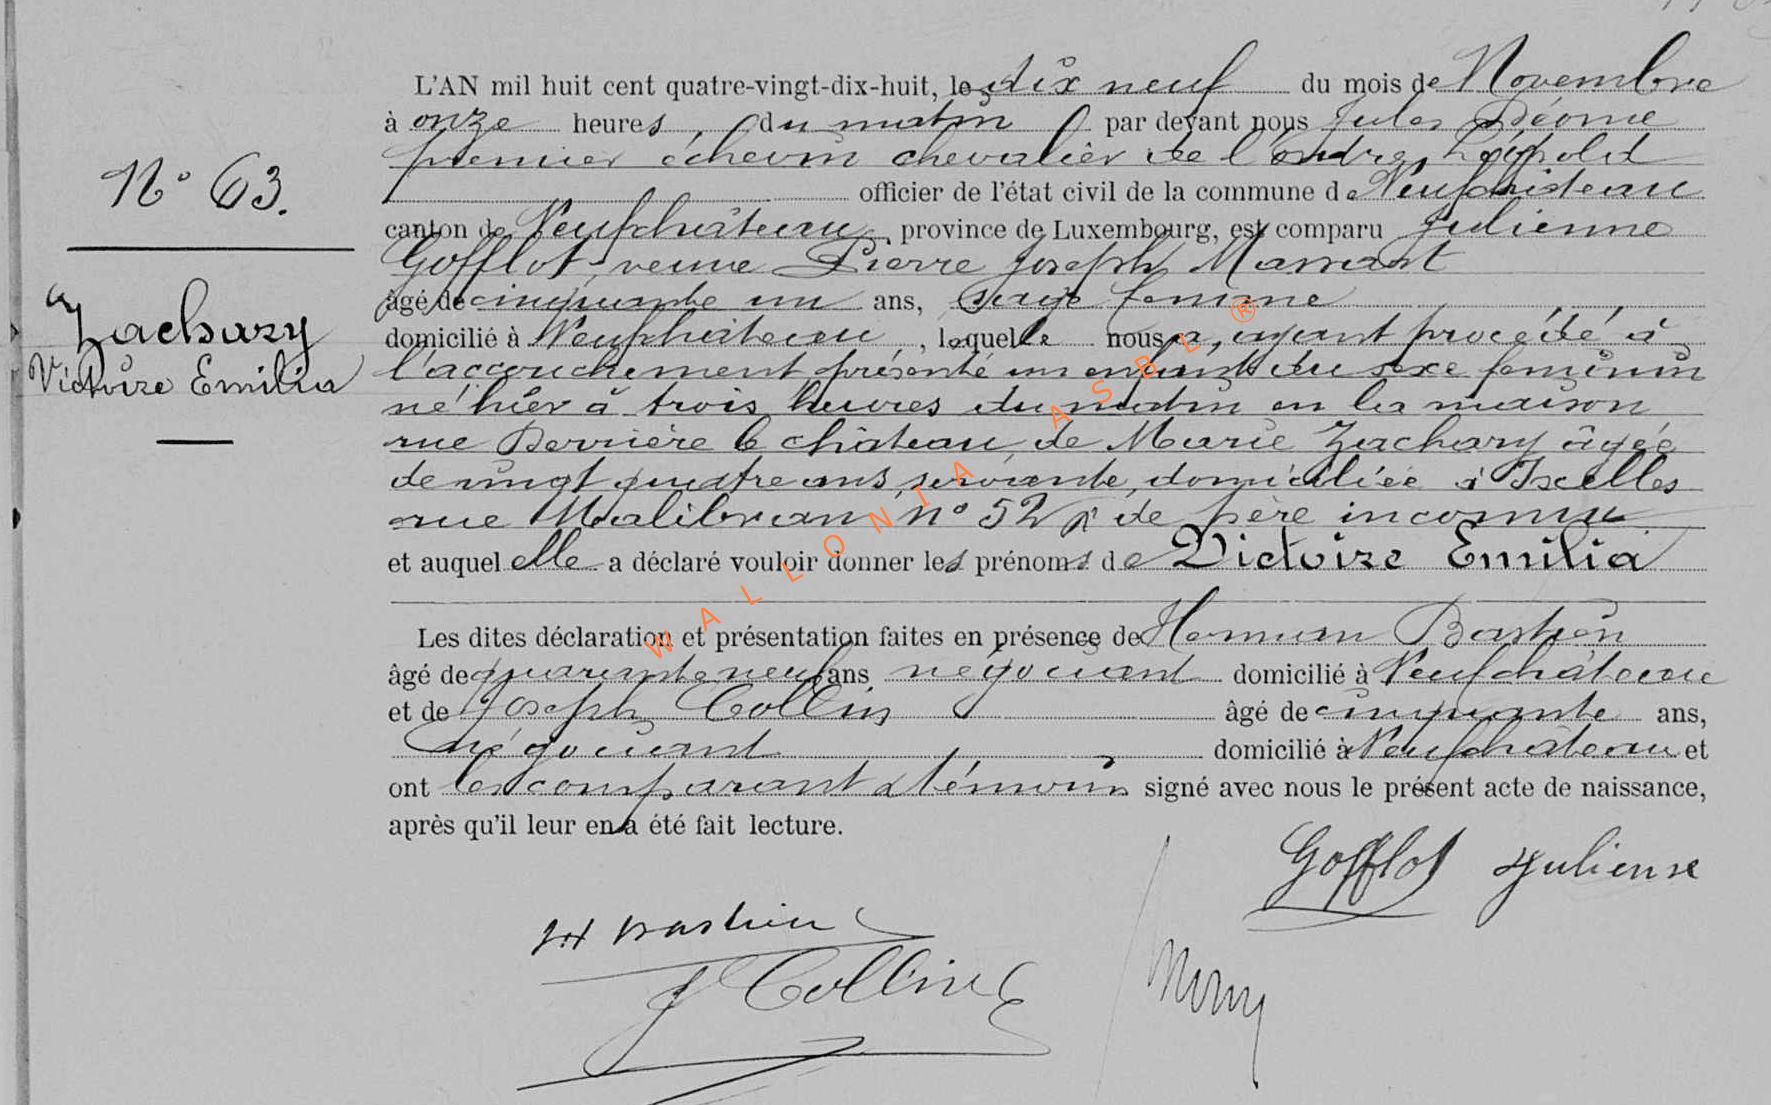 L'AN mil huit cent quatre-vingt-dix-huit, le dix neuf du mois de Novembre
à onze heures, du matin par devant nous Jules Déome
premier échevin chevalier de l'ordre Léopold
officier de l'état civil de la commune de Neufchâteau
canton de Neufchâteau, province de Luxembourg, est comparu Julienne
Gofflot veuve Pierre Joseph
âgé de cinquante un ans, sage femme
domicilié à Neufchâteau, laquelle nous a, ayant procédé à
l'accouchement présenté un enfant du sexe féminin
né hier à trois heures du matin en la maison
rue Derrière le château, de Marie Zachary âgée
de vingt quatre ans, servante, domiciliée à Ixelles
rue Malibran, n° 52 & de père inconnu
et auquel elle a déclaré vouloir donner les prénoms de Victoire Emilia
Les dites déclaration et présentation faites en présence de Herman Bastien
âgé de quarante neuf ans négociant domicilié à Neufchâteau
et de Joseph Collin âgé de cinquante ans,
négociant domicilié à Neufchâteau et
ont les comparant & témoins signé avec nous le présent acte de naissance,
après qu'il leur en a été fait lecture.
N° 63.
Zachary
Victoire Emilia
Gofflot Julienne
H Bastien
J Collin
WALLONIA ASBL ®